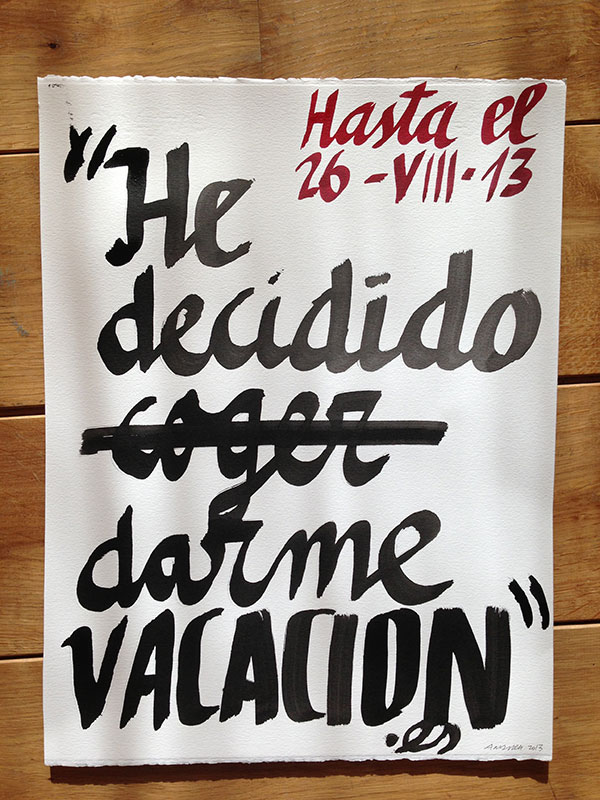 Hasta el
26-VIII-13
"He
decidido
coger
darme
VACACION"
.es
ANDREA 2013